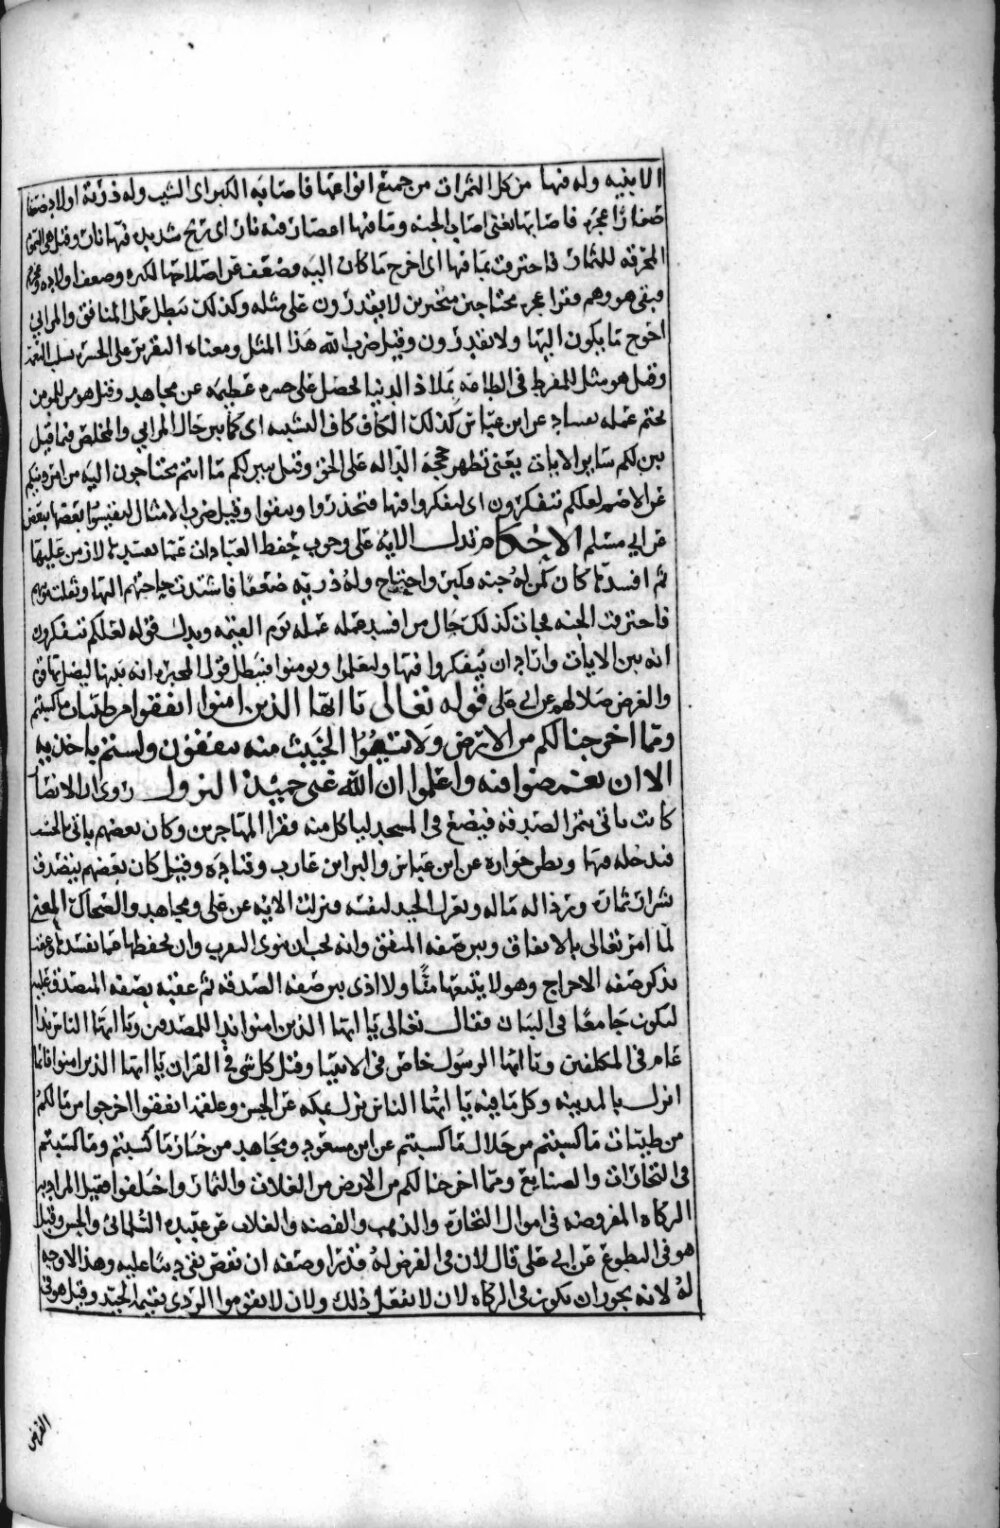 الابنيه وله فيها من كل الثمرات من جميع انواعها فاصابه الكبر اى الشيب وله ذرية اولاد ضعفا
صغارًا عجزه فاصابها يعنى اصاب الجنه وما فيها اعصار فيه نار اى ريح شديد فيها نار وقيل هى السموم
المحرقه للثمار فاحترقت بما فيها اى احوج ما كان اليه وضعف عن اصلاحها لكبره وضعف اولاده
فبقى هو وهم فقرا عجزه محتاجين متحيرين لا يقدرون على مثله وكذلك يبطل عمل المنافق والمرائى
احوج ما يكون اليها ولا يقدرون وقيل ضرب الله هذا المثل ومعناه التقرير على الحسره بسلب النعمة
وقيل هو مثل للمفرط فى الطاعه بملاذ الدنيا يحصل على حسره عظيمه عن مجاهد وقيل هو مثل للمؤمن
يختم عمله بفساد عن ابن عباس كذلك الكاف كاف التشبيه اى كما بين حال المرائى والمخلص فيما قيل
بين لكم سائر الايات يعنى تظهر حججه الداله على الحق وقيل يبين لكم ما انتم تحتاجون اليه من امر دينكم
عن الاصم لعلكم تتفكرون اى لتفكروا فيها فتحذروا وتتقوا وقيل ضرب الامثال لتقيسوا بعضها ببعض
عن ابي مسلم الاحكام تدل الايه على وجوب حفظ العبادات عما يفسدها لان من عليها
ثم افسدها كان كمن له جنه وكبر واحتاج وله ذريه ضعفا فاشتدت حاجتهم اليها وثقلت
فاحترقت الجنه فجات كذلك حال من افسد عمله عمله يوم القيمه ويدل قوله لعلكم تتفكرون
انه بين الايات واراد ان يتفكروا فيها وليعلموا ويومنوا فيبطل قول المجبره انه بينها ليضل بها قوم
والغرض ضلالهم عن ابى على قوله تعالى يا ايها الذين امنوا انفقوا من طيبات ما كسبتم
ومما اخرجنا لكم من الارض ولا تيمموا الخبيث منه تنفقون ولستم باخذيه
الا ان تغمضوا فيه واعلموا ان الله غنى حميد النزول روى ان الانصار
كانت تاتى بتمر الصدقه فيضع فى المسجد لياكل منه فقرا المهاجرين وكان بعضهم ياتى بالحشف
فيدخله فيها ويظن جوازه عن ابن عباس والبرا ابن عازب وقتاده وقيل كان بعضهم يتصدق
بشرار ثماره ورذاله ماله ويعزل الجيد لنفسه فنزلت الايه عن على ومجاهد والضحاك المعنى
لما امر تعالى بالانفاق وبين صفه المنفق وانه يجب ان ينوى التقرب وان يحفظها مما يفسدها وعقبه
بذكر صفه الاخراج وهو لا يتبعها منًّا ولا اذى بين صفه الصدقه ثم عقبه بصفه المتصدق عليه
ليكون جامعًا فى البيان فقال تعالى يا ايها الذين امنوا ندا للمصدقين ويا ايها الناس ندا
عام فى المكلفين ويا ايها الرسول خاص فى الانبيا وقيل كل شى فى القران يا ايها الذين امنوا فانما
انزل بالمدينه وكل ما فيه يا ايها الناس نزل بمكه عن الحسن وعلقمه انفقوا اخرجوا من مالكم
من طيبات ما كسبتم من حلال ما كسبتم عن ابن مسعود ومجاهد من خيار ما كسبتم وما كسبتم
فى التجارات والصنايع ومما اخرجنا لكم من الارض من الغلات والثمار واختلفوا فقيل المراد به
الزكاه المفروضه فى اموال التجاره والذهب والفضه والغلات عن عبيده السلمانى والحسن وقيل
هو فى التطوع عن ابى على قال لان فى الفرض له قدرا وصفه ان نقص بقى دينا عليه وهذا لا وجه
له لانه يجوز ان يكون فى الزكاه لان لا يفعل ذلك ولان لا يقوموا الردى بقيمه الجيد وقيل هو فى
الفرض